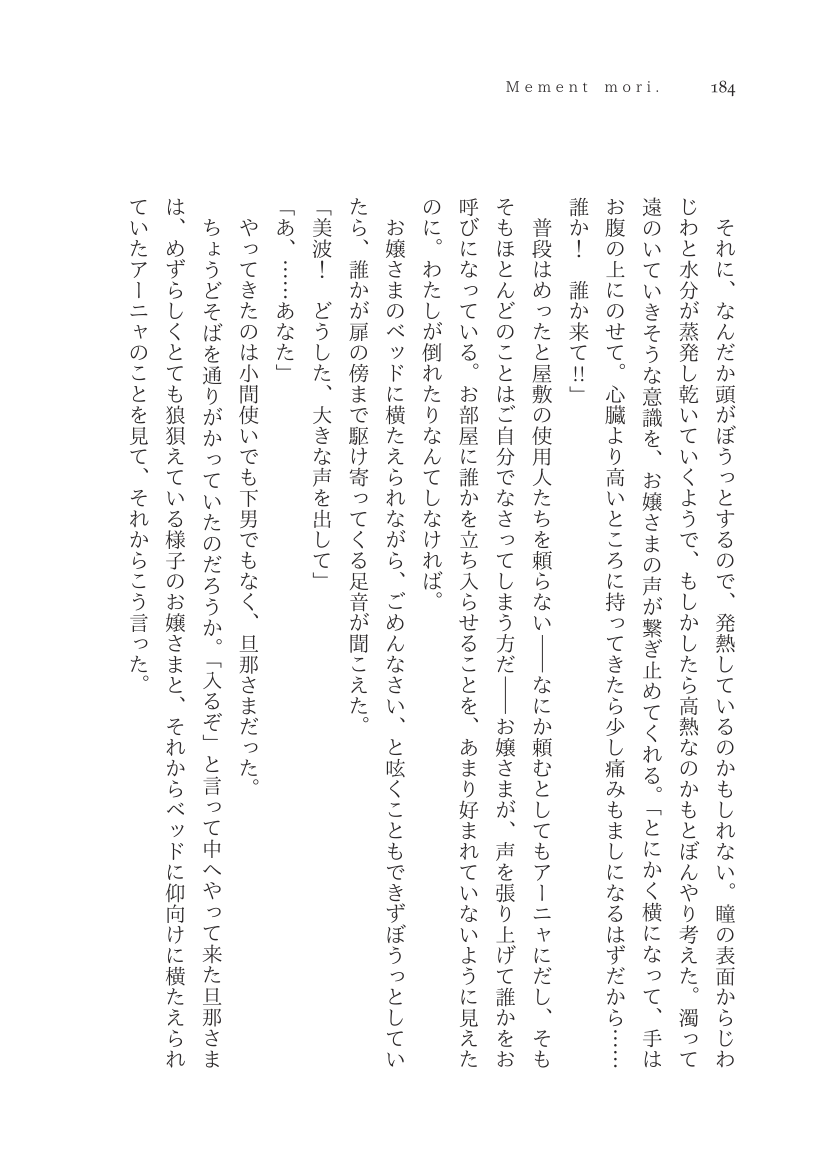 Mement mori.
184
　それに、なんだか頭がぼうっとするので、発熱しているのかもしれない。瞳の表面からじわ
じわと水分が蒸発し乾いていくようで、もしかしたら高熱なのかもとぼんやり考えた。濁って
遠のいていきそうな意識を、お嬢さまの声が繋ぎ止めてくれる。「とにかく横になって、手は
お腹の上にのせて。心臓より高いところに持ってきたら少し痛みもましになるはずだから……
誰か！　誰か来て!!」
　普段はめったと屋敷の使用人たちを頼らない――なにか頼むとしてもアーニャにだし、そも
そもほとんどのことはご自分でなさってしまう方だ――お嬢さまが、声を張り上げて誰かをお
呼びになっている。お部屋に誰かを立ち入らせることを、あまり好まれていないように見えた
のに。わたしが倒れたりなんてしなければ。
　お嬢さまのベッドに横たえられながら、ごめんなさい、と呟くこともできずぼうっとしてい
たら、誰かが扉の傍まで駆け寄ってくる足音が聞こえた。
「美波！　どうした、大きな声を出して」
「あ、……あなた」
　やってきたのは小間使いでも下男でもなく、旦那さまだった。
　ちょうどそばを通りがかっていたのだろうか。「入るぞ」と言って中へやって来た旦那さま
は、めずらしくとても狼狽えている様子のお嬢さまと、それからベッドに仰向けに横たえられ
ていたアーニャのことを見て、それからこう言った。